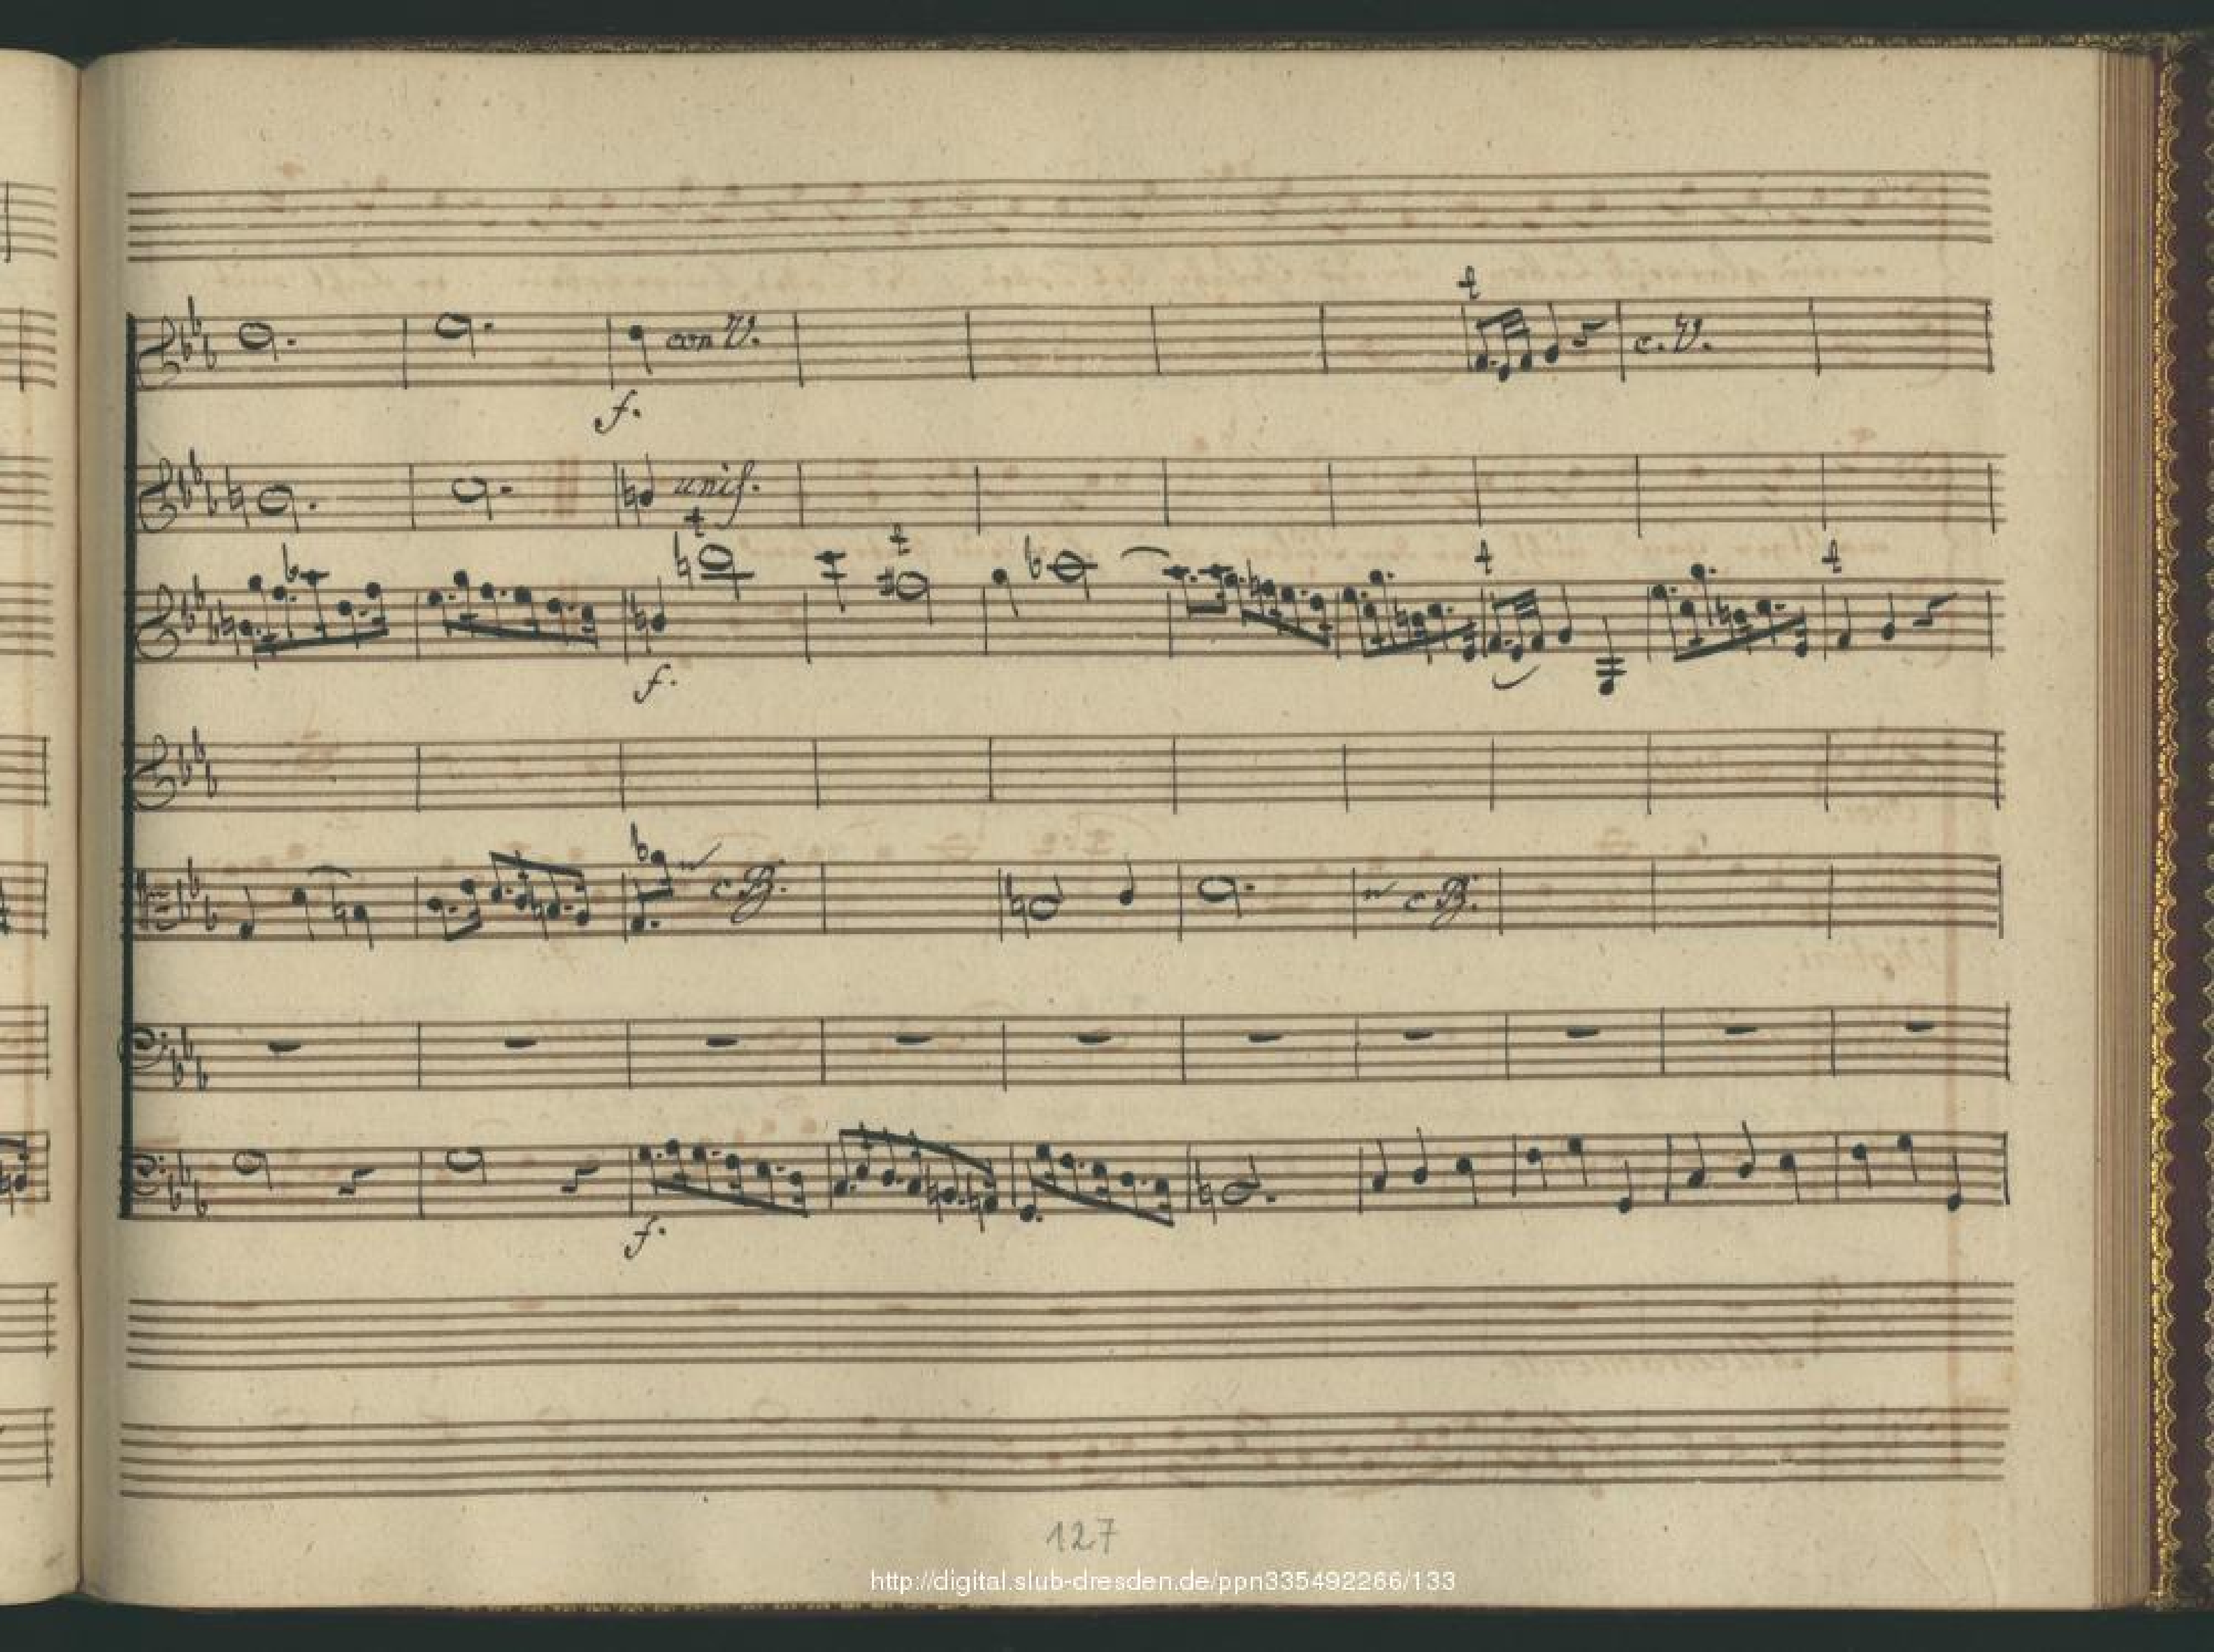 con V.
c. V.
f.
unis.
f.
c B.
c B.
f.
127
http://digital.slub-dresden.de/ppn335492266/133